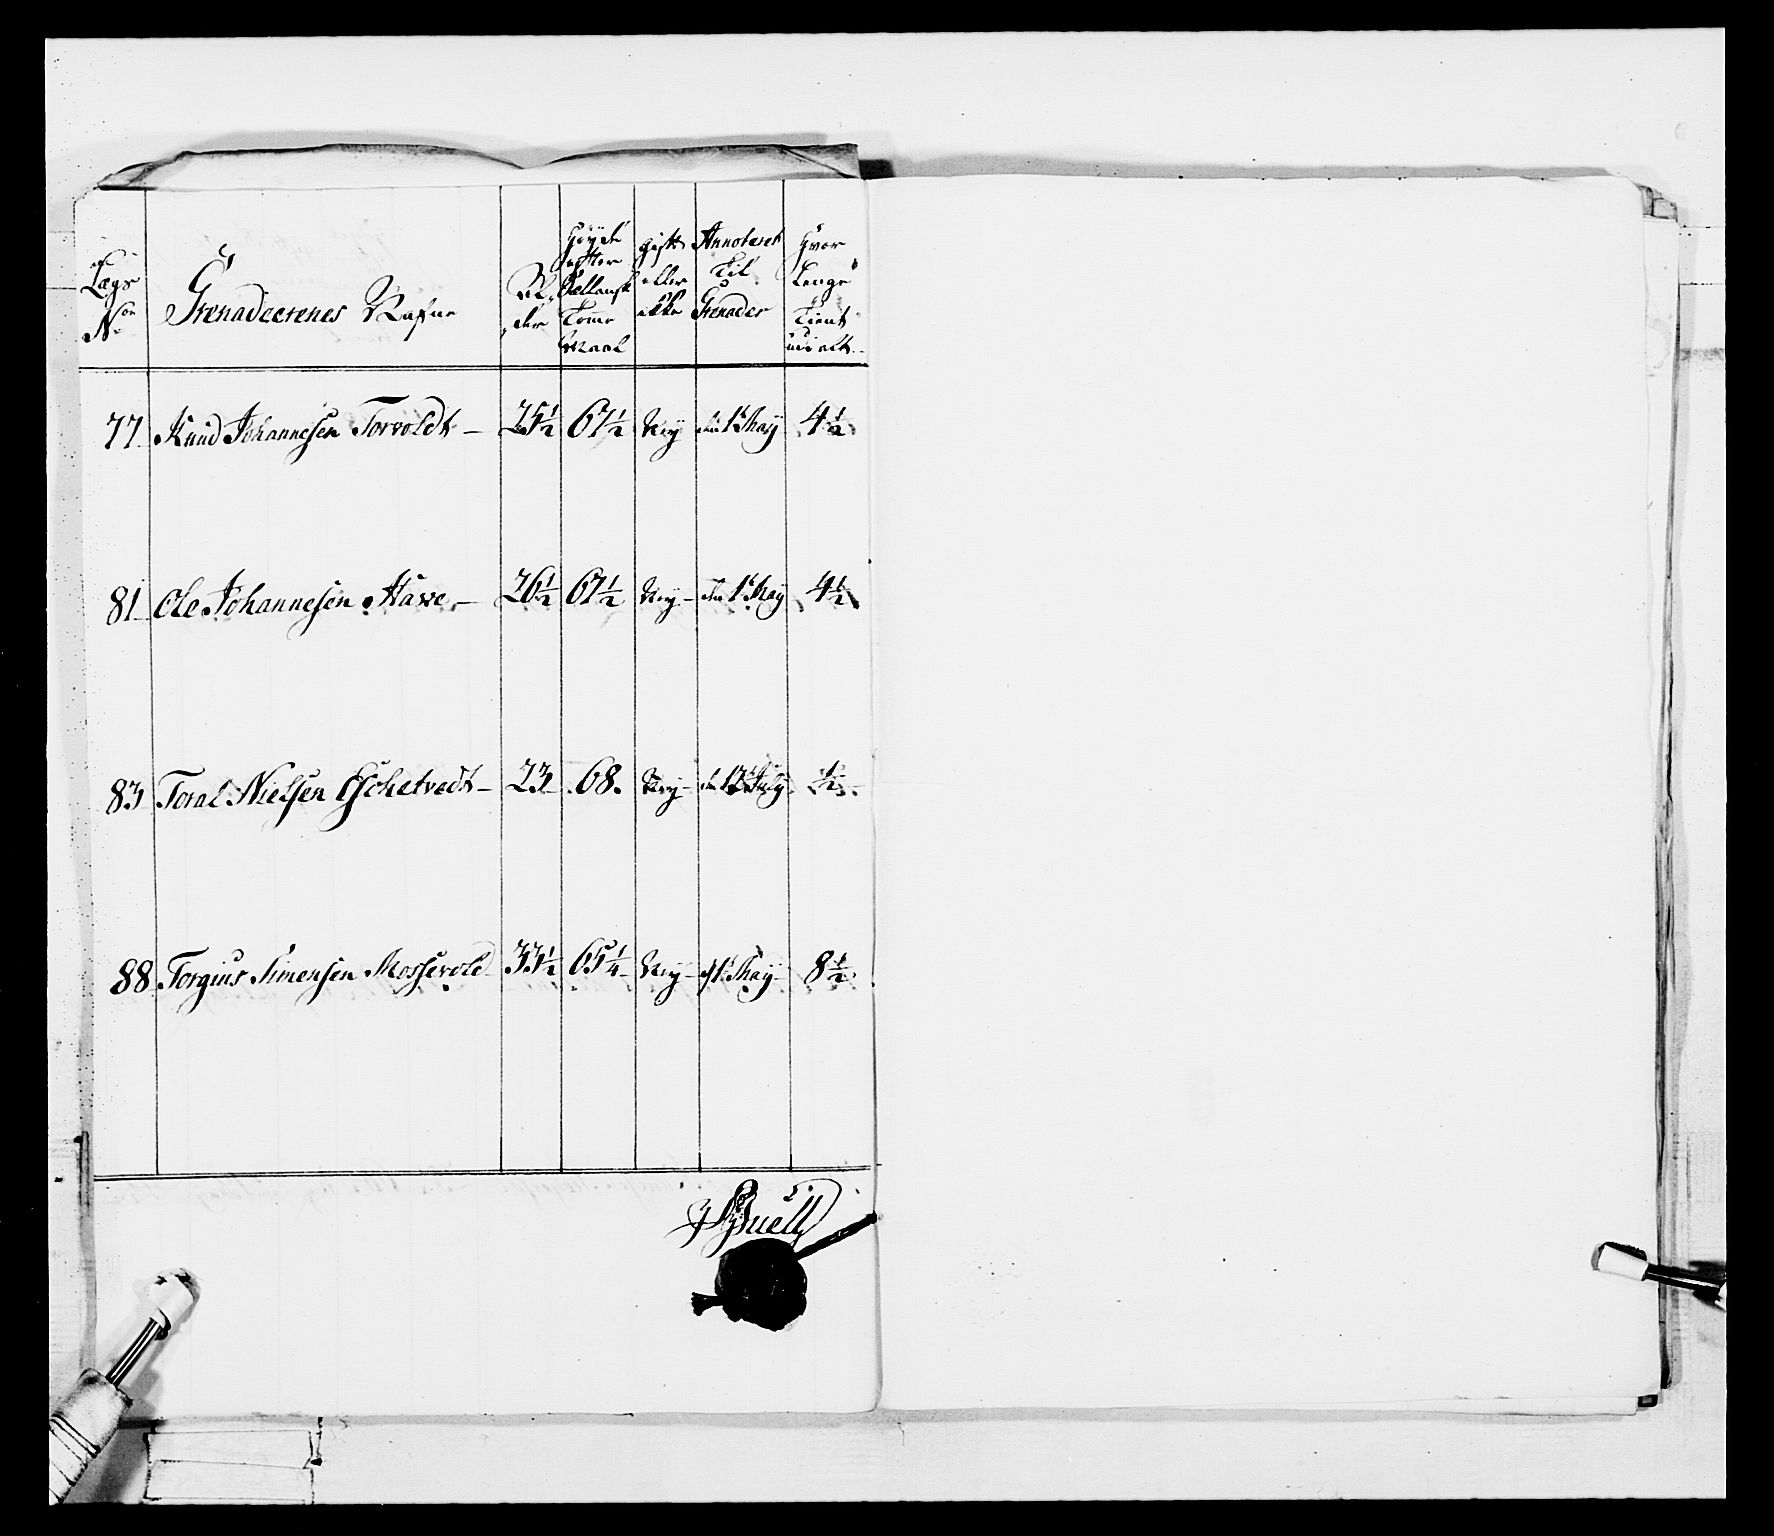 Lægs
No
Grenadeerenes Nafne
Al
der
Høyde
efter
Sællansk
Tomme
Maal
gift
eller
ikke
Annoteret
Til
Grenader
Hvor
Lenge
Tient
udi alt
77. Knud Johannesen Torvoldt – 25½ 67½ Ney den 1t May 4½
81 Ole Johannesen Haave – 26½ 67½ Ney – den 1t May 4½
83 Toral Nielsen – 23 68. Ney – July ½
88 Torgius Simensen Mosserold 33½ 65¼ Ney – d 1t May – 8½